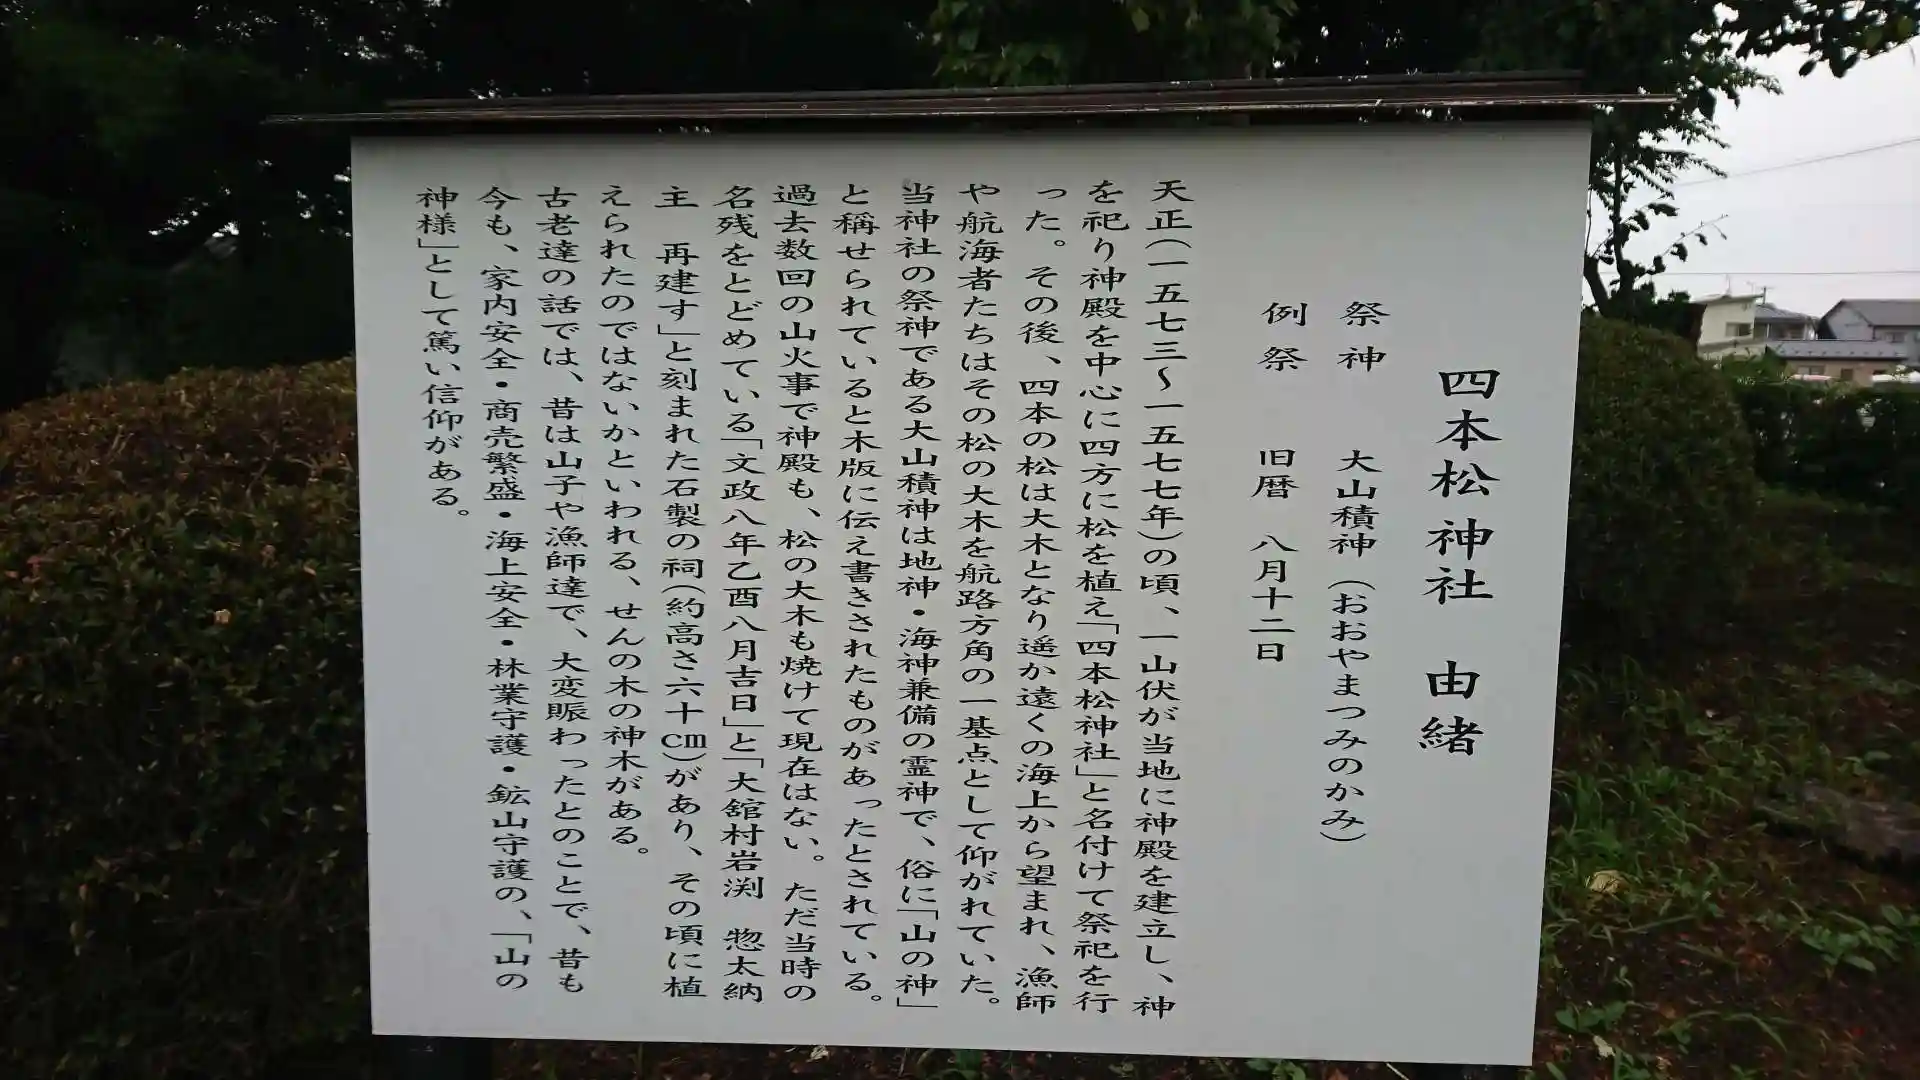 四本松神社　由緒
祭神　　大山積神（おおやまつみのかみ）
例祭　　旧暦　八月十二日
天正（一五七三～一五七七年）の頃、一山伏が当地に神殿を建立し、神
を祀り神殿を中心に四方に松を植え「四本松神社」と名付けて祭祀を行
った。その後、四本の松は大木となり遥か遠くの海上から望まれ、漁師
や航海者たちはその松の大木を航路方角の一基点として仰がれていた。
当神社の祭神である大山積神は地神・海神兼備の霊神で、俗に「山の神」
と稱せられていると木版に伝え書きされたものがあったとされている。
過去数回の山火事で神殿も、松の大木も焼けて現在はない。ただ当時の
名残をとどめている「文政八年乙酉八月吉日」と「大舘村岩渕　惣太納
主　再建す」と刻まれた石製の祠（約高さ六十cm）があり、その頃に植
えられたのではないかといわれる、せんの木の神木がある。
古老達の話では、昔は山子や漁師達で、大変賑わったとのことで、昔も
今も、家内安全・商売繁盛・海上安全・林業守護・鉱山守護の、「山の
神様」として篤い信仰がある。